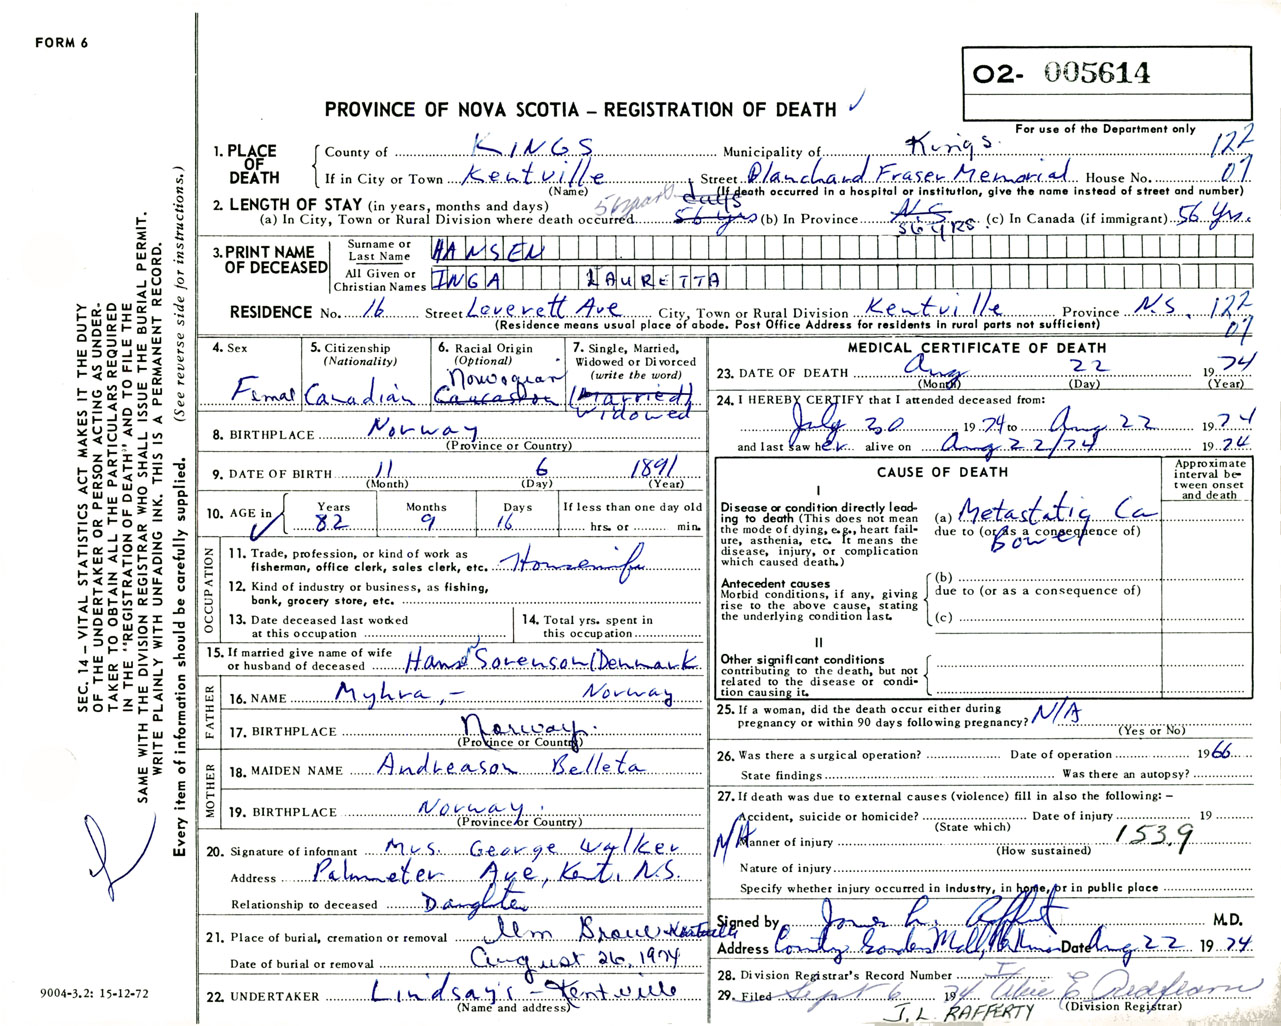 FORM 6
O2- 005614
PROVINCE OF NOVA SCOTIA – REGISTRATION OF DEATH ✓
For use of the Department only
1. PLACE OF DEATH
County of KINGS Municipality of Kings 122
If in City or Town Kentville Street Blanchard Fraser Memorial House No. 07
(Name) (If death occurred in a hospital or institution, give the name instead of street and number)
2. LENGTH OF STAY (in years, months and days) days
(a) In City, Town or Rural Division where death occurred 56 years 56 yrs (b) In Province N.S. 56 YRS. (c) In Canada (if immigrant) 56 Yrs.
3. PRINT NAME OF DECEASED
Surname or Last Name HANSEN
All Given or Christian Names INGA LAURETTA
RESIDENCE No. 16 Street Leverett Ave City, Town or Rural Division Kentville Province N.S. 122
(Residence means usual place of abode. Post Office Address for residents in rural parts not sufficient) 07
4. Sex Femal
5. Citizenship (Nationality) Canadian
6. Racial Origin (Optional) Norwegian Caucasion
7. Single, Married, Widowed or Divorced (write the word) (Married) Widowed
8. BIRTHPLACE Norway
(Province or Country)
9. DATE OF BIRTH 11 6 1891
(Month) (Day) (Year)
10. AGE in Years Months Days If less than one day old
✓ 82 9 16 hrs. or min.
OCCUPATION
11. Trade, profession, or kind of work as fisherman, office clerk, sales clerk, etc. Housewife
12. Kind of industry or business, as fishing, bank, grocery store, etc.
13. Date deceased last worked at this occupation
14. Total yrs. spent in this occupation
15. If married give name of wife or husband of deceased Hans Sorenson (Denmark
FATHER
16. NAME Myhra, – Norway
17. BIRTHPLACE Norway.
(Province or Country)
MOTHER
18. MAIDEN NAME Andreason Belleta
19. BIRTHPLACE Norway.
(Province or Country)
20. Signature of informant Mrs. George Walker
Address Palmeter Ave, Kent. N.S.
Relationship to deceased Daughter
21. Place of burial, cremation or removal Elm Grove Kentville
Date of burial or removal August 26, 1974
22. UNDERTAKER Lindsay's – Kentville
(Name and address)
MEDICAL CERTIFICATE OF DEATH
23. DATE OF DEATH Aug 22 1974
(Month) (Day) (Year)
24. I HEREBY CERTIFY that I attended deceased from:
July 30 1974 to Aug 22 1974
and last saw her alive on Aug 22/74 1974
CAUSE OF DEATH
Approximate interval between onset and death
I
Disease or condition directly leading to death (This does not mean the mode of dying, e.g., heart failure, asthenia, etc. It means the disease, injury, or complication which caused death.)
(a) Metastatic Ca
due to (or as a consequence of)
Bowel
Antecedent causes
Morbid conditions, if any, giving rise to the above cause, stating the underlying condition last.
(b)
due to (or as a consequence of)
(c)
II
Other significant conditions
contributing to the death, but not related to the disease or condition causing it.
25. If a woman, did the death occur either during pregnancy or within 90 days following pregnancy? N/A
(Yes or No)
26. Was there a surgical operation? Date of operation 1966
State findings Was there an autopsy?
27. If death was due to external causes (violence) fill in also the following: –
Accident, suicide or homicide? Date of injury 19
(State which)
N/A Manner of injury 153.9
(How sustained)
Nature of injury
Specify whether injury occurred in industry, in home, or in public place
Signed by M.D.
Address Date Aug 22 1974
28. Division Registrar's Record Number
29. Filed Sept 6 1974
J.L. RAFFERTY (Division Registrar)
SEC. 14 – VITAL STATISTICS ACT MAKES IT THE DUTY
OF THE UNDERTAKER OR PERSON ACTING AS UNDER-
TAKER TO OBTAIN ALL THE PARTICULARS REQUIRED
IN THE "REGISTRATION OF DEATH" AND TO FILE THE
SAME WITH THE DIVISION REGISTRAR WHO SHALL ISSUE THE BURIAL PERMIT.
WRITE PLAINLY WITH UNFADING INK. THIS IS A PERMANENT RECORD.
Every item of information should be carefully supplied. (See reverse side for instructions.)
9004-3.2: 15-12-72